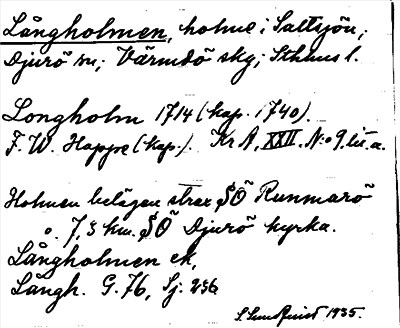 Långholmen, holme i Saltsjön;
Djurö sn; Värmdö skg; Sthms l.
Longholm 1714 (kap. 1740).
F. W. Happe (kap.) Kr A, XXII. N:o 9. lit. a.
Holmen belägen strax SÖ Runmarö
o. 7,3 km. SÖ Djurö kyrka.
Långholmen ek,
Långh. G. 76, Sj. 236
S. Sundquist 1935.